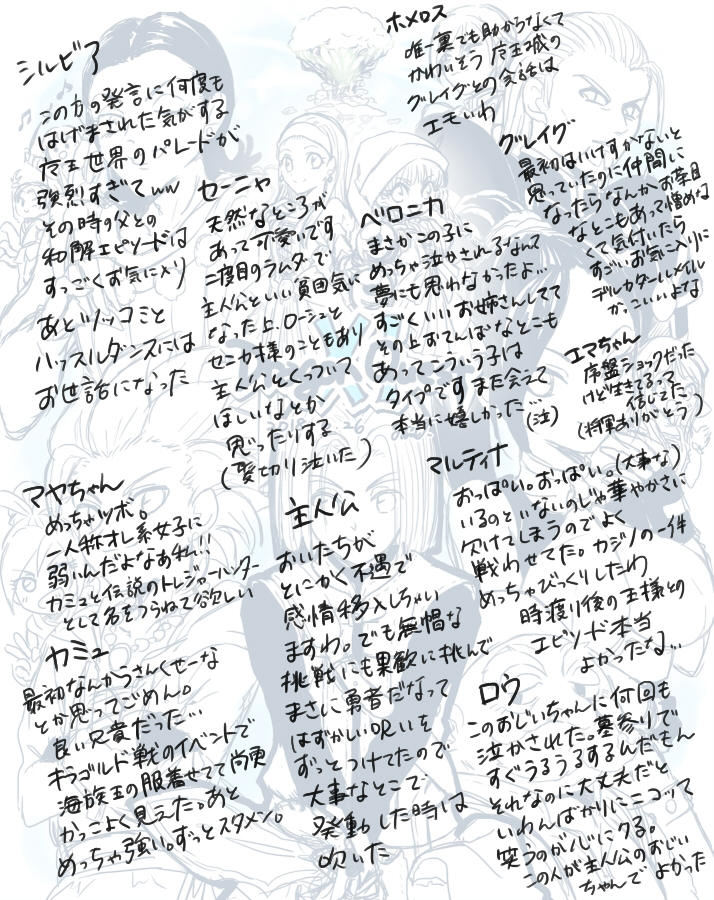 シルビア
この方の発言に何度も
はげまされた気がする
魔王世界のパレードが
強烈すぎてww
その時の父との
和解エピソードは
すっごくお気に入り
あとツッコミと
ハッスルダンスには
お世話になった
ホメロス
唯一裏でも助からなくて
かわいそう 魔王城の
グレイグとの会話は
エモいわ
グレイグ
最初はいけすかないと
思っていたのに仲間に
なったらなんかお茶目
なとこもあって憎めな
くて気付いたら
すごいお気に入りに
デルカダールメイル
かっこいいよな
セーニャ
天然なところが
あって可愛いです
二度目のラムダで
主人公といい雰囲気に
なった上、ローシュと
セニカ様のこともあり
主人公とくっついて
ほしいなとか
思ったりする
(髪切り泣いた)
ベロニカ
まさかこの子に
めっちゃ泣かされるなんて
夢にも思わなかったよ…
すごくいいお姉さんしてて
その上おてんばなとこも
あってこういう子は
タイプです また会えて
本当に嬉しかった…(泣)
エマちゃん
序盤ショックだった
けど生きてるって
信じてた
(将軍ありがとう)
マヤちゃん
めっちゃツボ。
一人称オレ系女子に
弱いんだよなあ私!!
カミュと伝説のトレジャーハンター
として名をつらねて欲しい
カミュ
最初なんかうさんくせーな
とか思ってごめん。
良い兄貴だった…
キラゴルド戦のイベントで
海賊王の服着せてて尚更
かっこよく見えた。あと
めっちゃ強い。ずっとスタメン。
主人公
おいたちが
とにかく不遇で
感情移入しちゃい
ますわ。でも無謀な
挑戦にも果敢に挑んで
まさしく勇者だなって
はずかしい呪いを
ずっとつけてたので
大事なとこで
発動した時は
吹いた
マルティナ
おっぱい。おっぱい。(大事な)
いるのといないのじゃ華やかさに
欠けてしまうのでよく
戦わせてた。カジノの一件
めっちゃびっくりしたわ
時渡り後の王様との
エピソード本当
よかったな…
ロウ
このおじいちゃんに何回も
泣かされた。墓参りで
すぐうるうるするんだもん
それなのに大丈夫だと
いわんばかりにニコッて
笑うのが心にクる。
この人が主人公のおじい
ちゃんで よかった